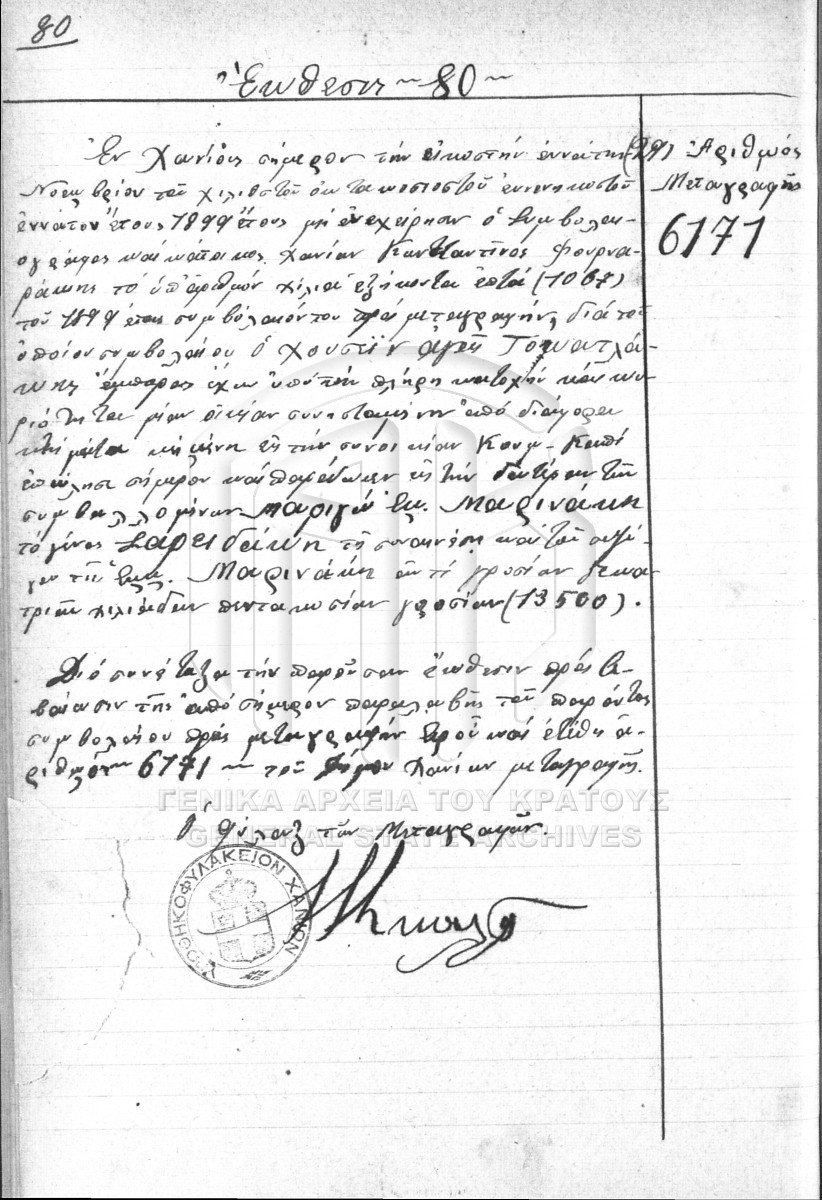 80
Ἔκθεσις ~ 80 ~
Ἐν Χανίοις σήμερον τὴν εἰκοστὴν ἐννάτην (29)
Νοεμβρίου τοῦ χιλιοστοῦ ὀκτακοσιοστοῦ ἐννενηκοστοῦ
ἐννάτου ἔτους 1899 ἔτους μοὶ ἐνεχείρησεν ὁ Συμβολαι-
ογράφος καὶ κάτοικος Χανίων Κωνσταντῖνος Φουρνα-
ράκης τὸ ὑπ' ἀριθμὸν χίλια ἑξήκοντα ἑπτά (1067)
τοῦ 1899 ἔτους συμβόλαιόν του πρὸς μεταγραφήν, διὰ τοῦ
ὁποίου συμβολαίου ὁ Χουσεῒν ἀγᾶς
ἔμπορος ἔχων ὑπὸ τὴν πλήρη κατοχὴν καὶ κυ-
ριότητα μίαν οἰκίαν συνισταμένην ἀπὸ διάφορα
κτήματα κειμένη εἰς τὴν συνοικίαν Κουμ-Καπὶ
ἐπώλησε σήμερον καὶ παρέδωκεν εἰς τὴν δευτέραν τῶν
συμβαλλομένων Μαριγὼ Εμ. Μαρινάκη
τὸ γένος Σαρειδάκη τῇ συναινέσει καὶ τοῦ συζύ-
γου της Εμμ. Μαρινάκη ἀντὶ γροσίων δεκα-
τριῶν χιλιάδων πεντακοσίων γροσίων (13500).
Διὸ συνέταξα τὴν παροῦσαν ἔκθεσιν πρὸς βε-
βαίωσιν τῆς ἀπὸ σήμερον παραλαβῆς τοῦ παρόντος
συμβολαίου πρὸς μεταγραφὴν ἐφ' οὗ καὶ ἐτέθη ἀ-
ριθμὸς ~ 6171 ~ τοῦ Δήμου Χανίων μεταγραφῆς.
Ὁ Φύλαξ τῶν Μεταγραφῶν.
Ἀριθμός
Μεταγραφῆς
6171
ΥΠΟΘΗΚΟΦΥΛΑΚΕΙΟΝ ΧΑΝΙΩΝ
ΓΕΝΙΚΑ ΑΡΧΕΙΑ ΤΟΥ ΚΡΑΤΟΥΣ
GENERAL STATE ARCHIVES